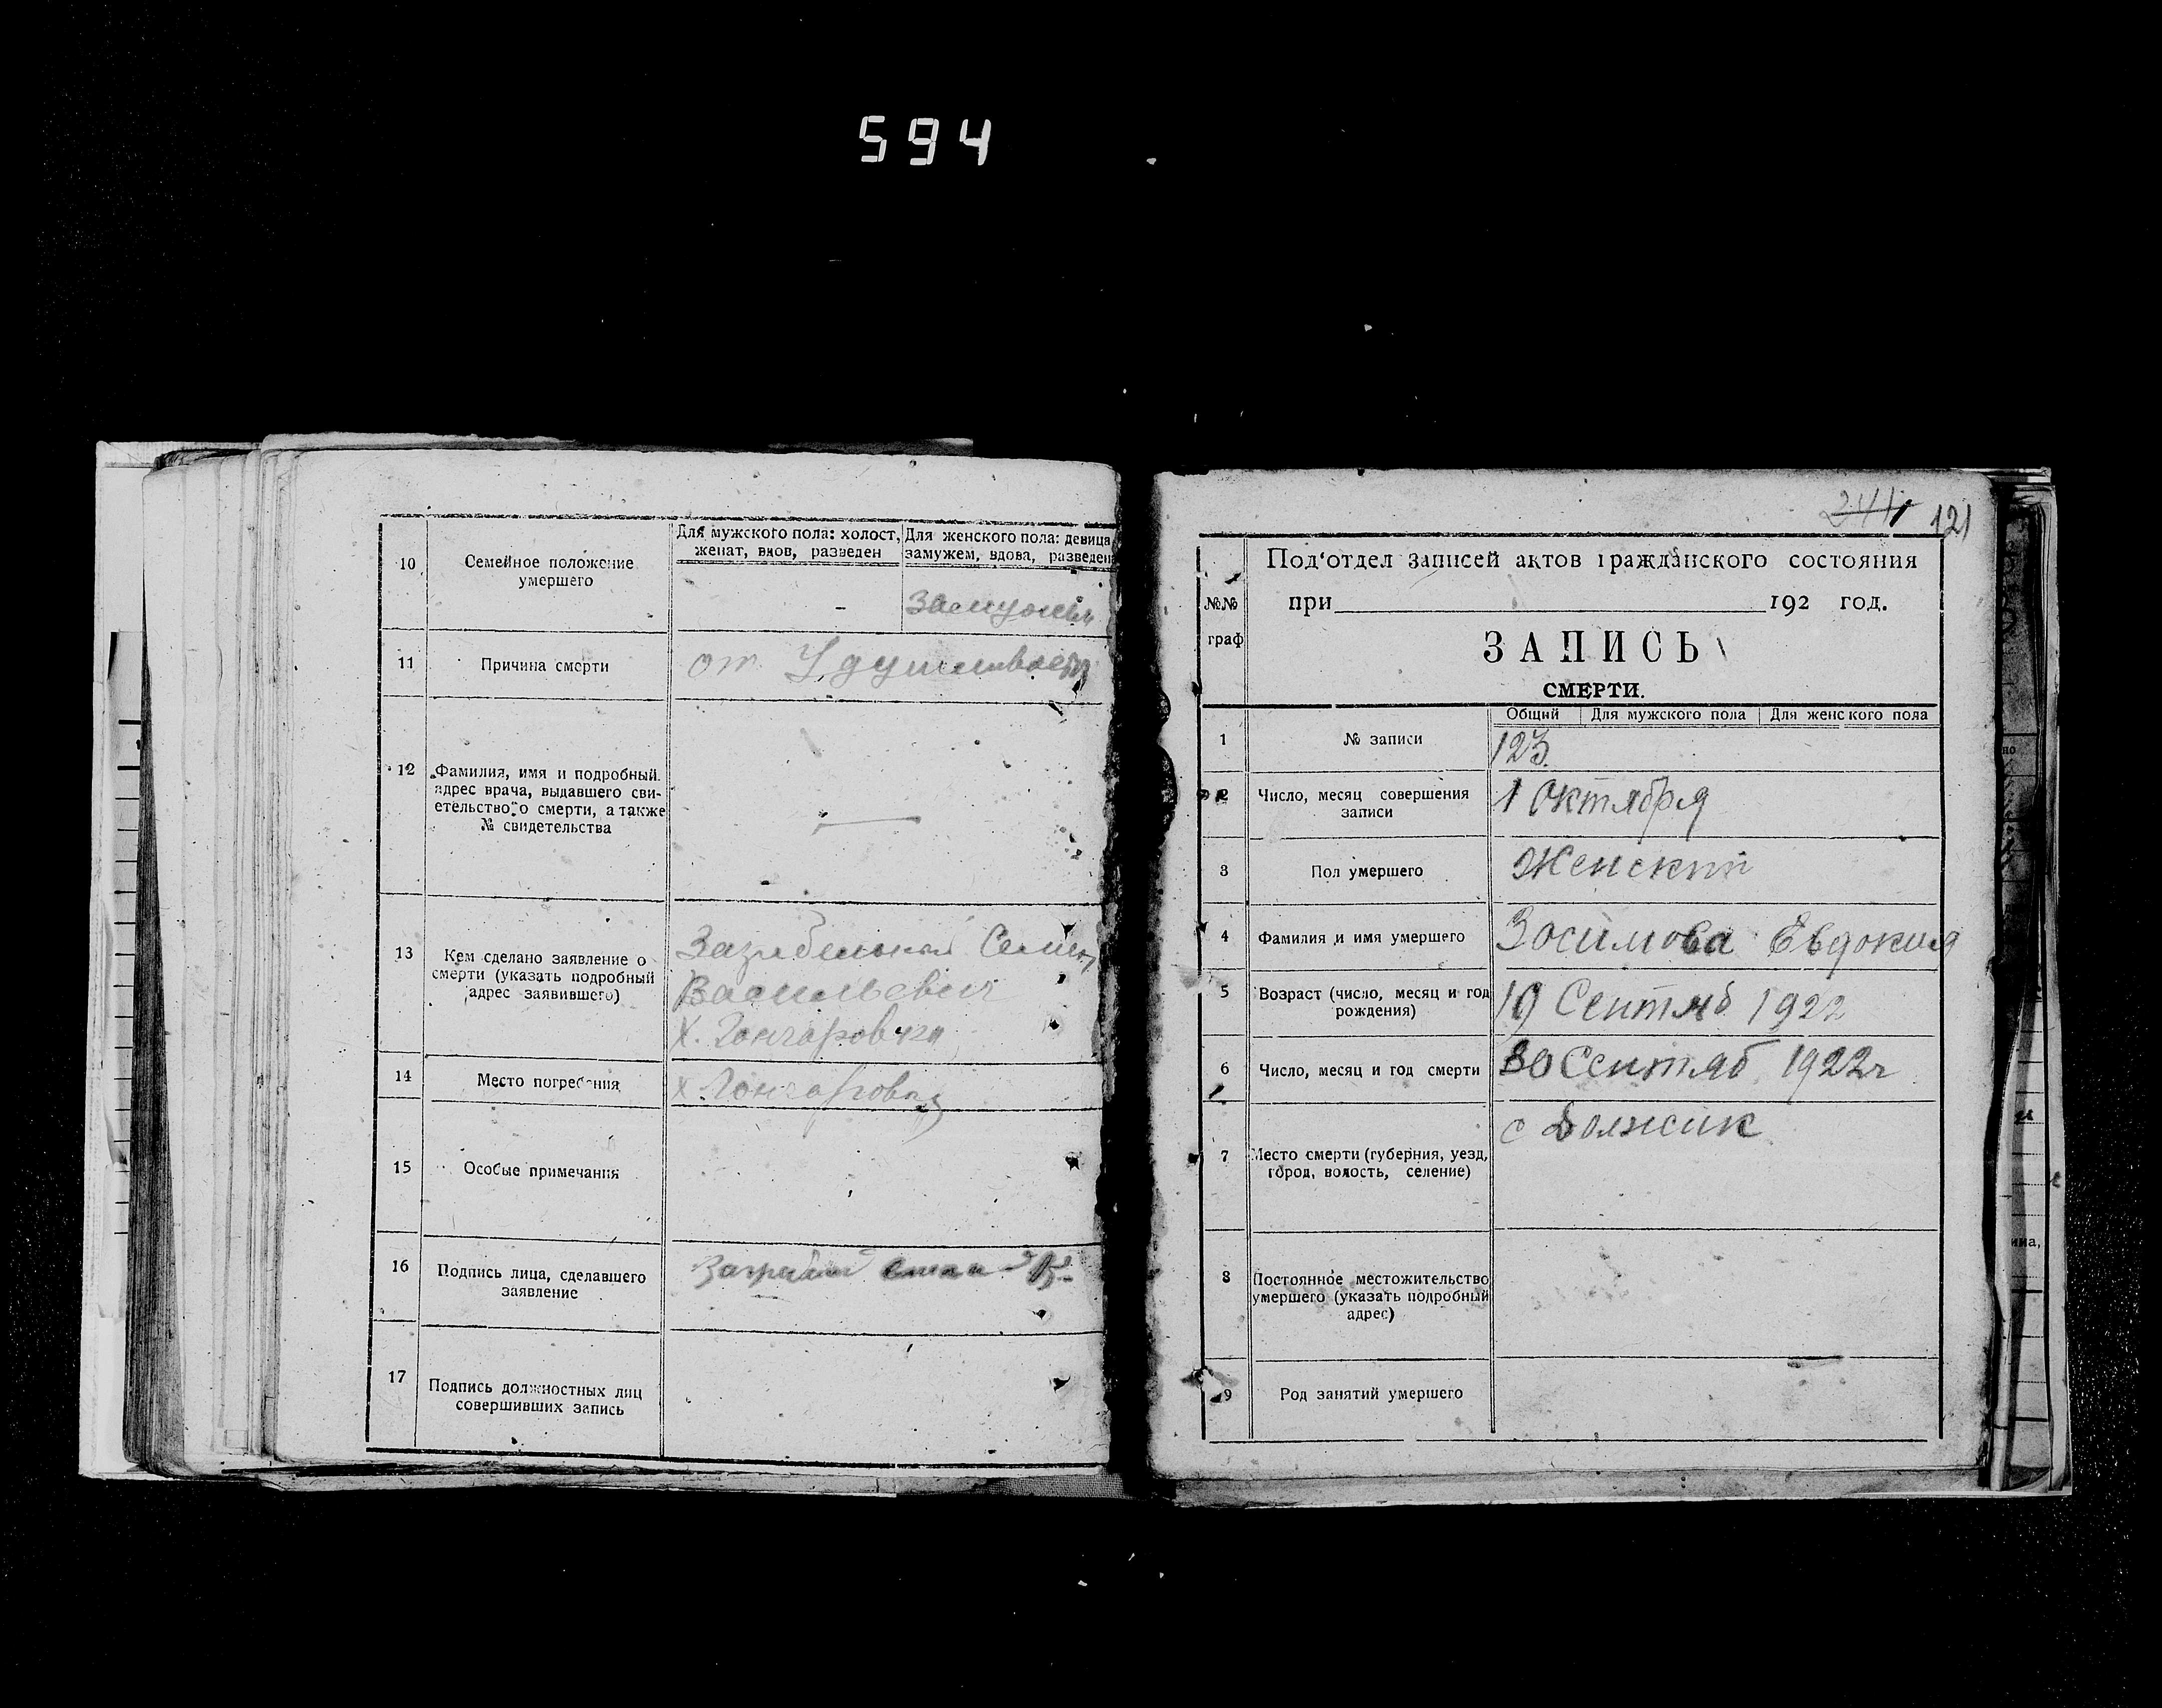 594
10
Семейное положение
умершего
Для мужского пола: холост,
женат, вдов, разведен
Для женского пола: девица
замужем, вдова, разведен
-
Замужем
11
Причина смерти
от Удушливости
12
Фамилия, имя и подробный
адрес врача, выдавшего сви-
етельство о смерти, а также
№ свидетельства
13
Кем сделано заявление о
смерти (указать подробный
адрес заявившего)
Васильевич
х. Гончаровка
14
Место погребения
х. Гончаровка
15
Особые примечания
16
Подпись лица, сделавшего
заявление
17
Подпись должностных лиц
совершивших запись
241
121
№№
граф
Под'отдел записей актов гражданского состояния
при 192 год.
ЗАПИСЬ
СМЕРТИ.
Общий Для мужского пола Для женского пола
1
№ записи
123.
2
Число, месяц совершения
записи
1 Октября
3
Пол умершего
Женский
4
Фамилия и имя умершего
Зосимова Евдокия
5
Возраст (число, месяц и год
рождения)
19 Сентяб 1922
6
Число, месяц и год смерти
30 Сентяб 1922г
7
Место смерти (губерния, уезд,
город, волость, селение)
с Должик
8
Постоянное местожительство
умершего (указать подробный
адрес)
9
Род занятий умершего